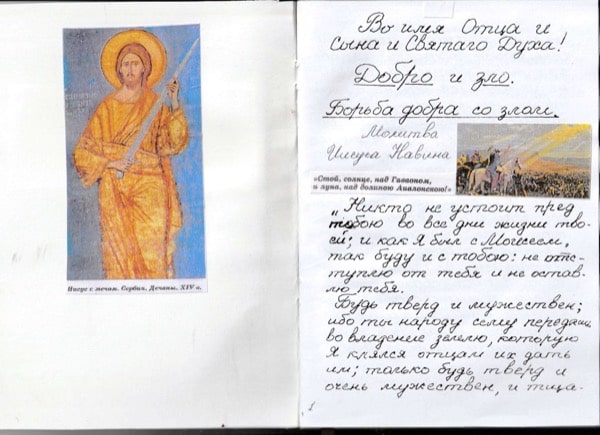 Иисус с мечом. Сербия. Дечаны, XIV в.
Во имя Отца и
Сына и Святаго Духа!
Добро и зло.
Борьба добра со злом.
Молитва
Иисуса Навина
«Стой, солнце, над Гаваоном,
и луна, над долиною Аиалонскою!»
„Никто не устоит пред
тобою во все дни жизни тво-
ей; и как Я был с Моисеем,
так буду и с тобою: не отс-
туплю от тебя и не остав-
лю тебя.
Будь тверд и мужествен;
ибо ты народу сему передашь
во владение землю, которую
Я клялся отцам их дать
им; только будь тверд и
очень мужествен, и тща-